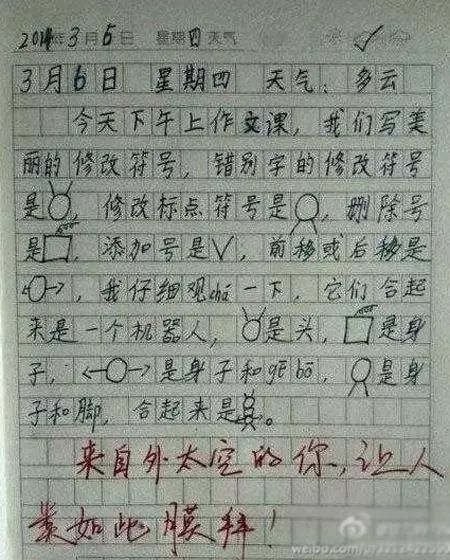 2014年3月6日 星期四天气
3月6日 星期四 天气：多云
今天下午上作文课，我们写美
丽的修改符号，错别字的修改符号
是 ，修改标点符号是 ，删除号
是 ，添加号是√，前移或后移是
，我仔细观chá一下，它们合起
来是一个机器人， 是头， 是身
子， 是身子和gē bō， 是身
子和脚，合起来是 。
来自外太空的你，让人
如此膜拜！
weibo.com